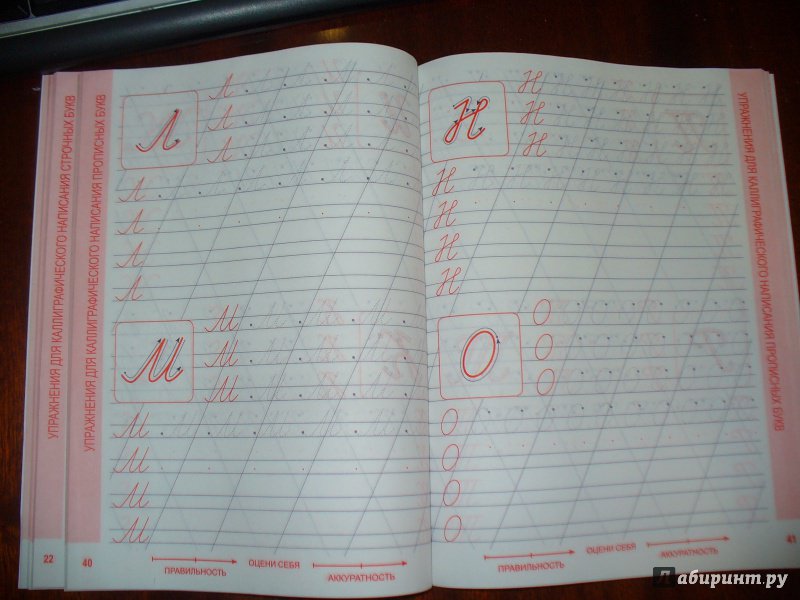 УПРАЖНЕНИЯ ДЛЯ КАЛЛИГРАФИЧЕСКОГО НАПИСАНИЯ СТРОЧНЫХ БУКВ
22
УПРАЖНЕНИЯ ДЛЯ КАЛЛИГРАФИЧЕСКОГО НАПИСАНИЯ ПРОПИСНЫХ БУКВ
Л
Л
Л
Л
Л
Л
Л
Л
М
М
М
М
М
М
М
М
40
ПРАВИЛЬНОСТЬ
ОЦЕНИ СЕБЯ
АККУРАТНОСТЬ
Н
Н
Н
Н
Н
Н
Н
Н
О
О
О
О
О
О
О
О
ПРАВИЛЬНОСТЬ
ОЦЕНИ СЕБЯ
АККУРАТНОСТЬ
41
УПРАЖНЕНИЯ ДЛЯ КАЛЛИГРАФИЧЕСКОГО НАПИСАНИЯ ПРОПИСНЫХ БУКВ
Лабиринт.ру